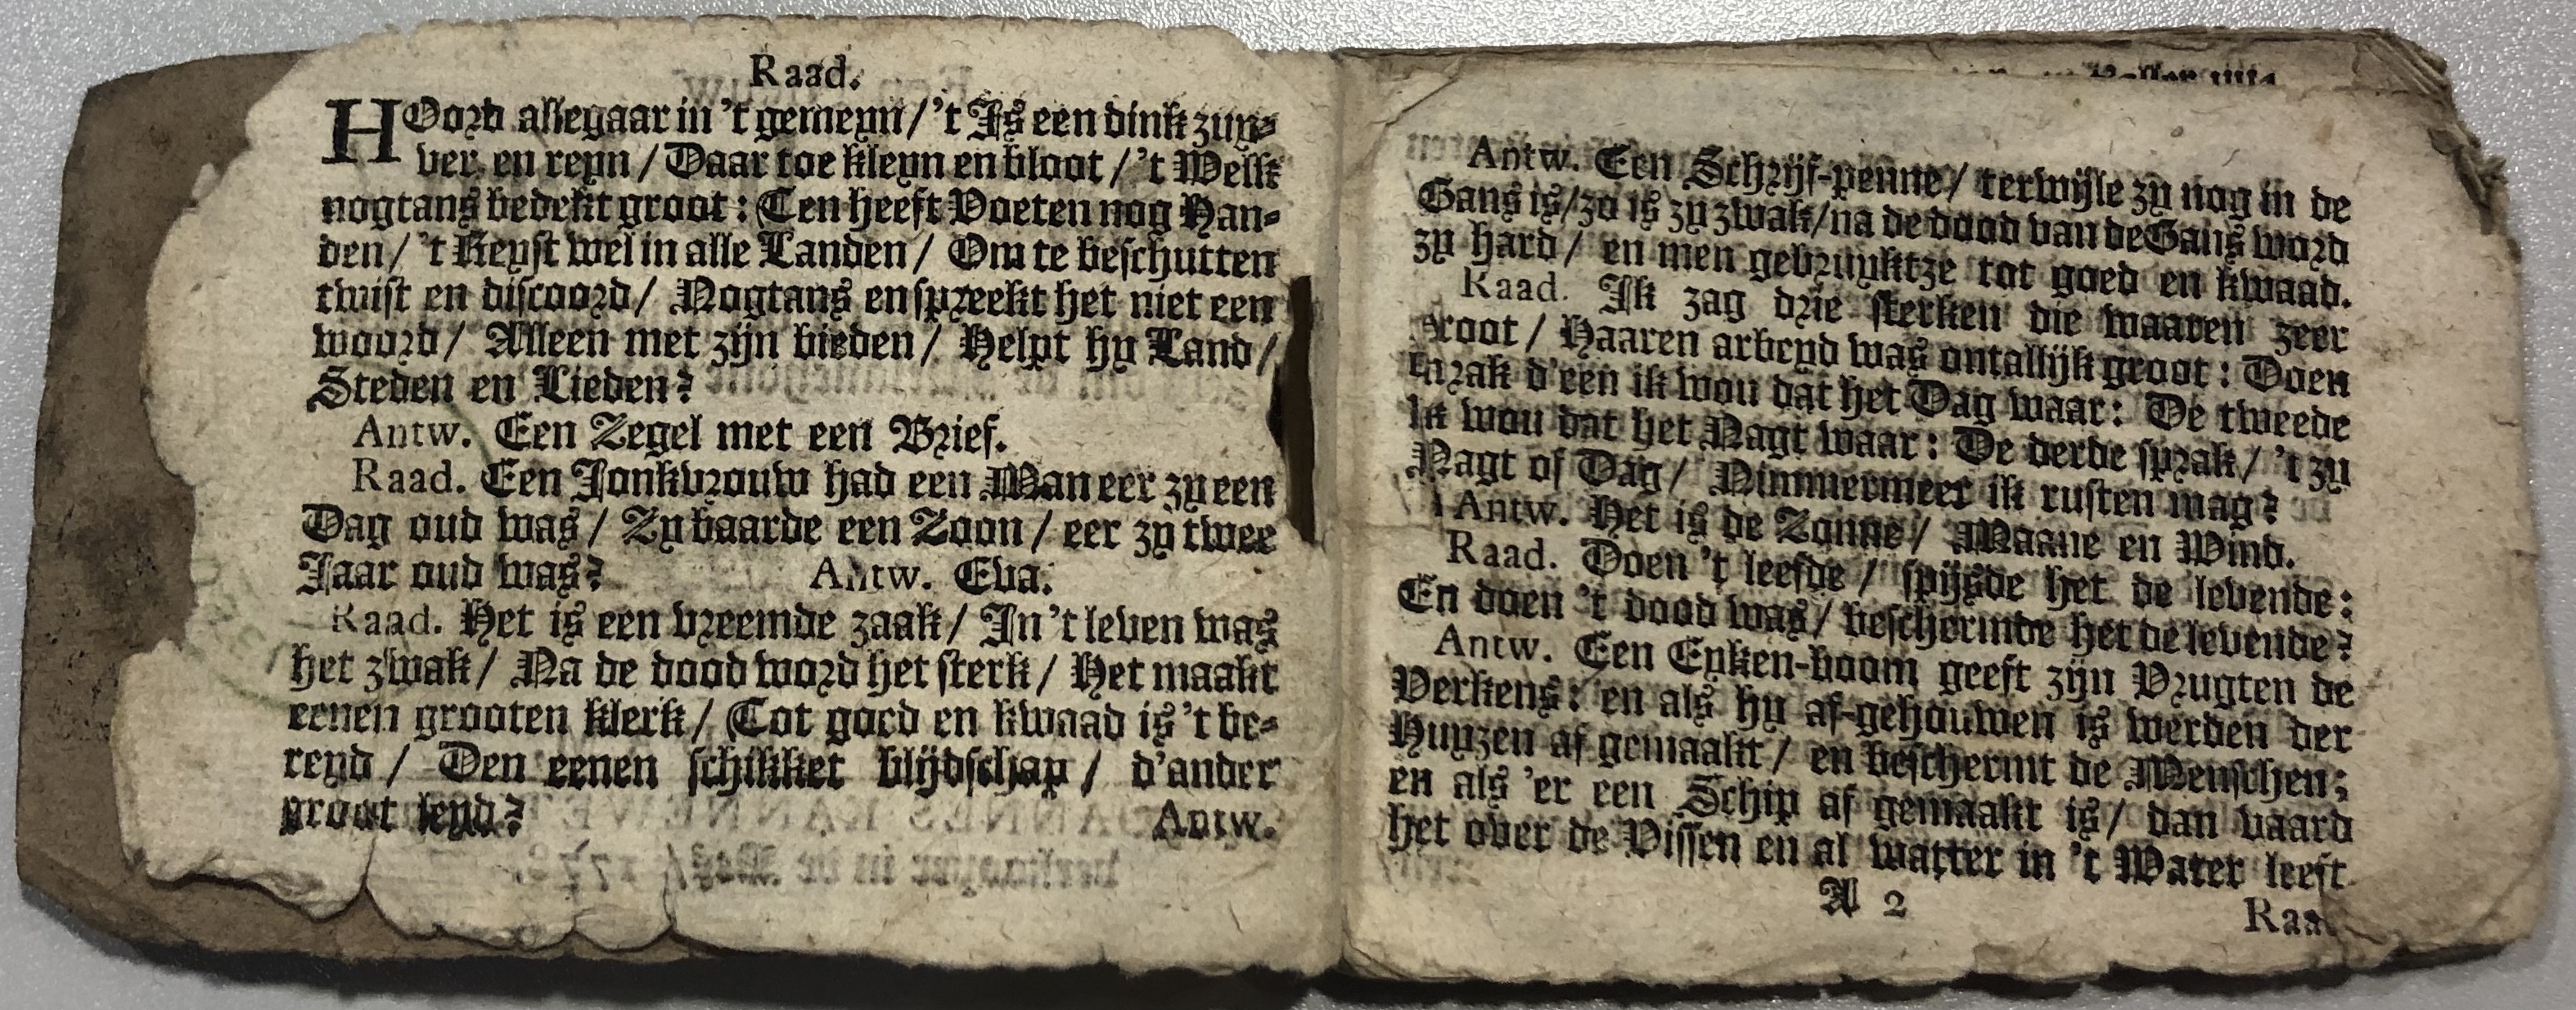 Raad.
HOord allegaar in 't gemeyn / 't Is een dink zuy-
ver en reyn / Daar toe kleyn en bloot / 't Welk
nogtans bedekt groot: Ten heeft Voeten nog Han-
den / 't Reyst wel in alle Landen / Om te beschutten
twist en discoord / Nogtans en spreekt het niet een
woord / Alleen met zijn bieden / Helpt hy Land /
Steden en Lieden?
Antw. Een Zegel met een Brief.
Raad. Een Jonkvrouw had een Man eer zy een
Dag oud was / Zy baarde een Zoon / eer zy twee
Jaar oud was? Antw. Eva.
Raad. Het is een vreemde zaak / In 't leven was
het zwak / Na de dood word het sterk / Het maakt
eenen grooten klerk / Tot goed en kwaad is 't be-
reyd / Den eenen schikket blijdschap / d'ander
groot leyd?
Antw.
Antw. Een Schrijf-penne / terwijle zy nog in de
Gans is / zo is zy zwak / na de dood van de Gans word
zy hard / en men gebruyktze tot goed en kwaad.
Raad. Ik zag drie sterken die waaren zeer
groot / Haaren arbeyd was ontallijk groot: Doen
sprak d'een ik wou dat het Dag waar: De tweede
Ik wou dat het Nagt waar: De derde sprak / 't zy
Nagt of Dag / Nimmermeer ik rusten mag?
Antw. Het is de Zonne / Maane en Wind.
Raad. Doen 't leefde / spijsde het de levende:
En doen 't dood was / beschermde het de levende?
Antw. Een Eyken-boom geeft zijn Vrugten de
Verkens: en als hy af-gehouwen is werden der
Huyzen af gemaakt / en beschermt de Menschen;
en als 'er een Schip af gemaakt is / dan vaard
het over de Vissen en al watter in 't Water leeft
A 2
Raa